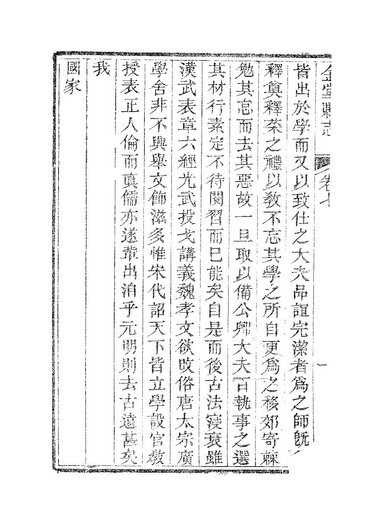 金堂縣志 卷七 一
皆出於學而又以致仕之大夫品誼完潔者爲之師旣
釋奠釋菜之禮以敎不忘其學之所自更爲之移郊寄棘
勉其怠而去其惡故一旦取以備公卿大夫百執事之選
其材行素定不待閱習而已能矣自是而後古法寖衰雖
漢武表章六經光武投戈講義魏孝文欲攺俗唐太宗廣
學舍非不興舉文飾滋多惟宋代詔天下皆立學設官敎
授表正人倫而眞儒亦遂輩出洎乎元明則去古遠甚矣
我
國家